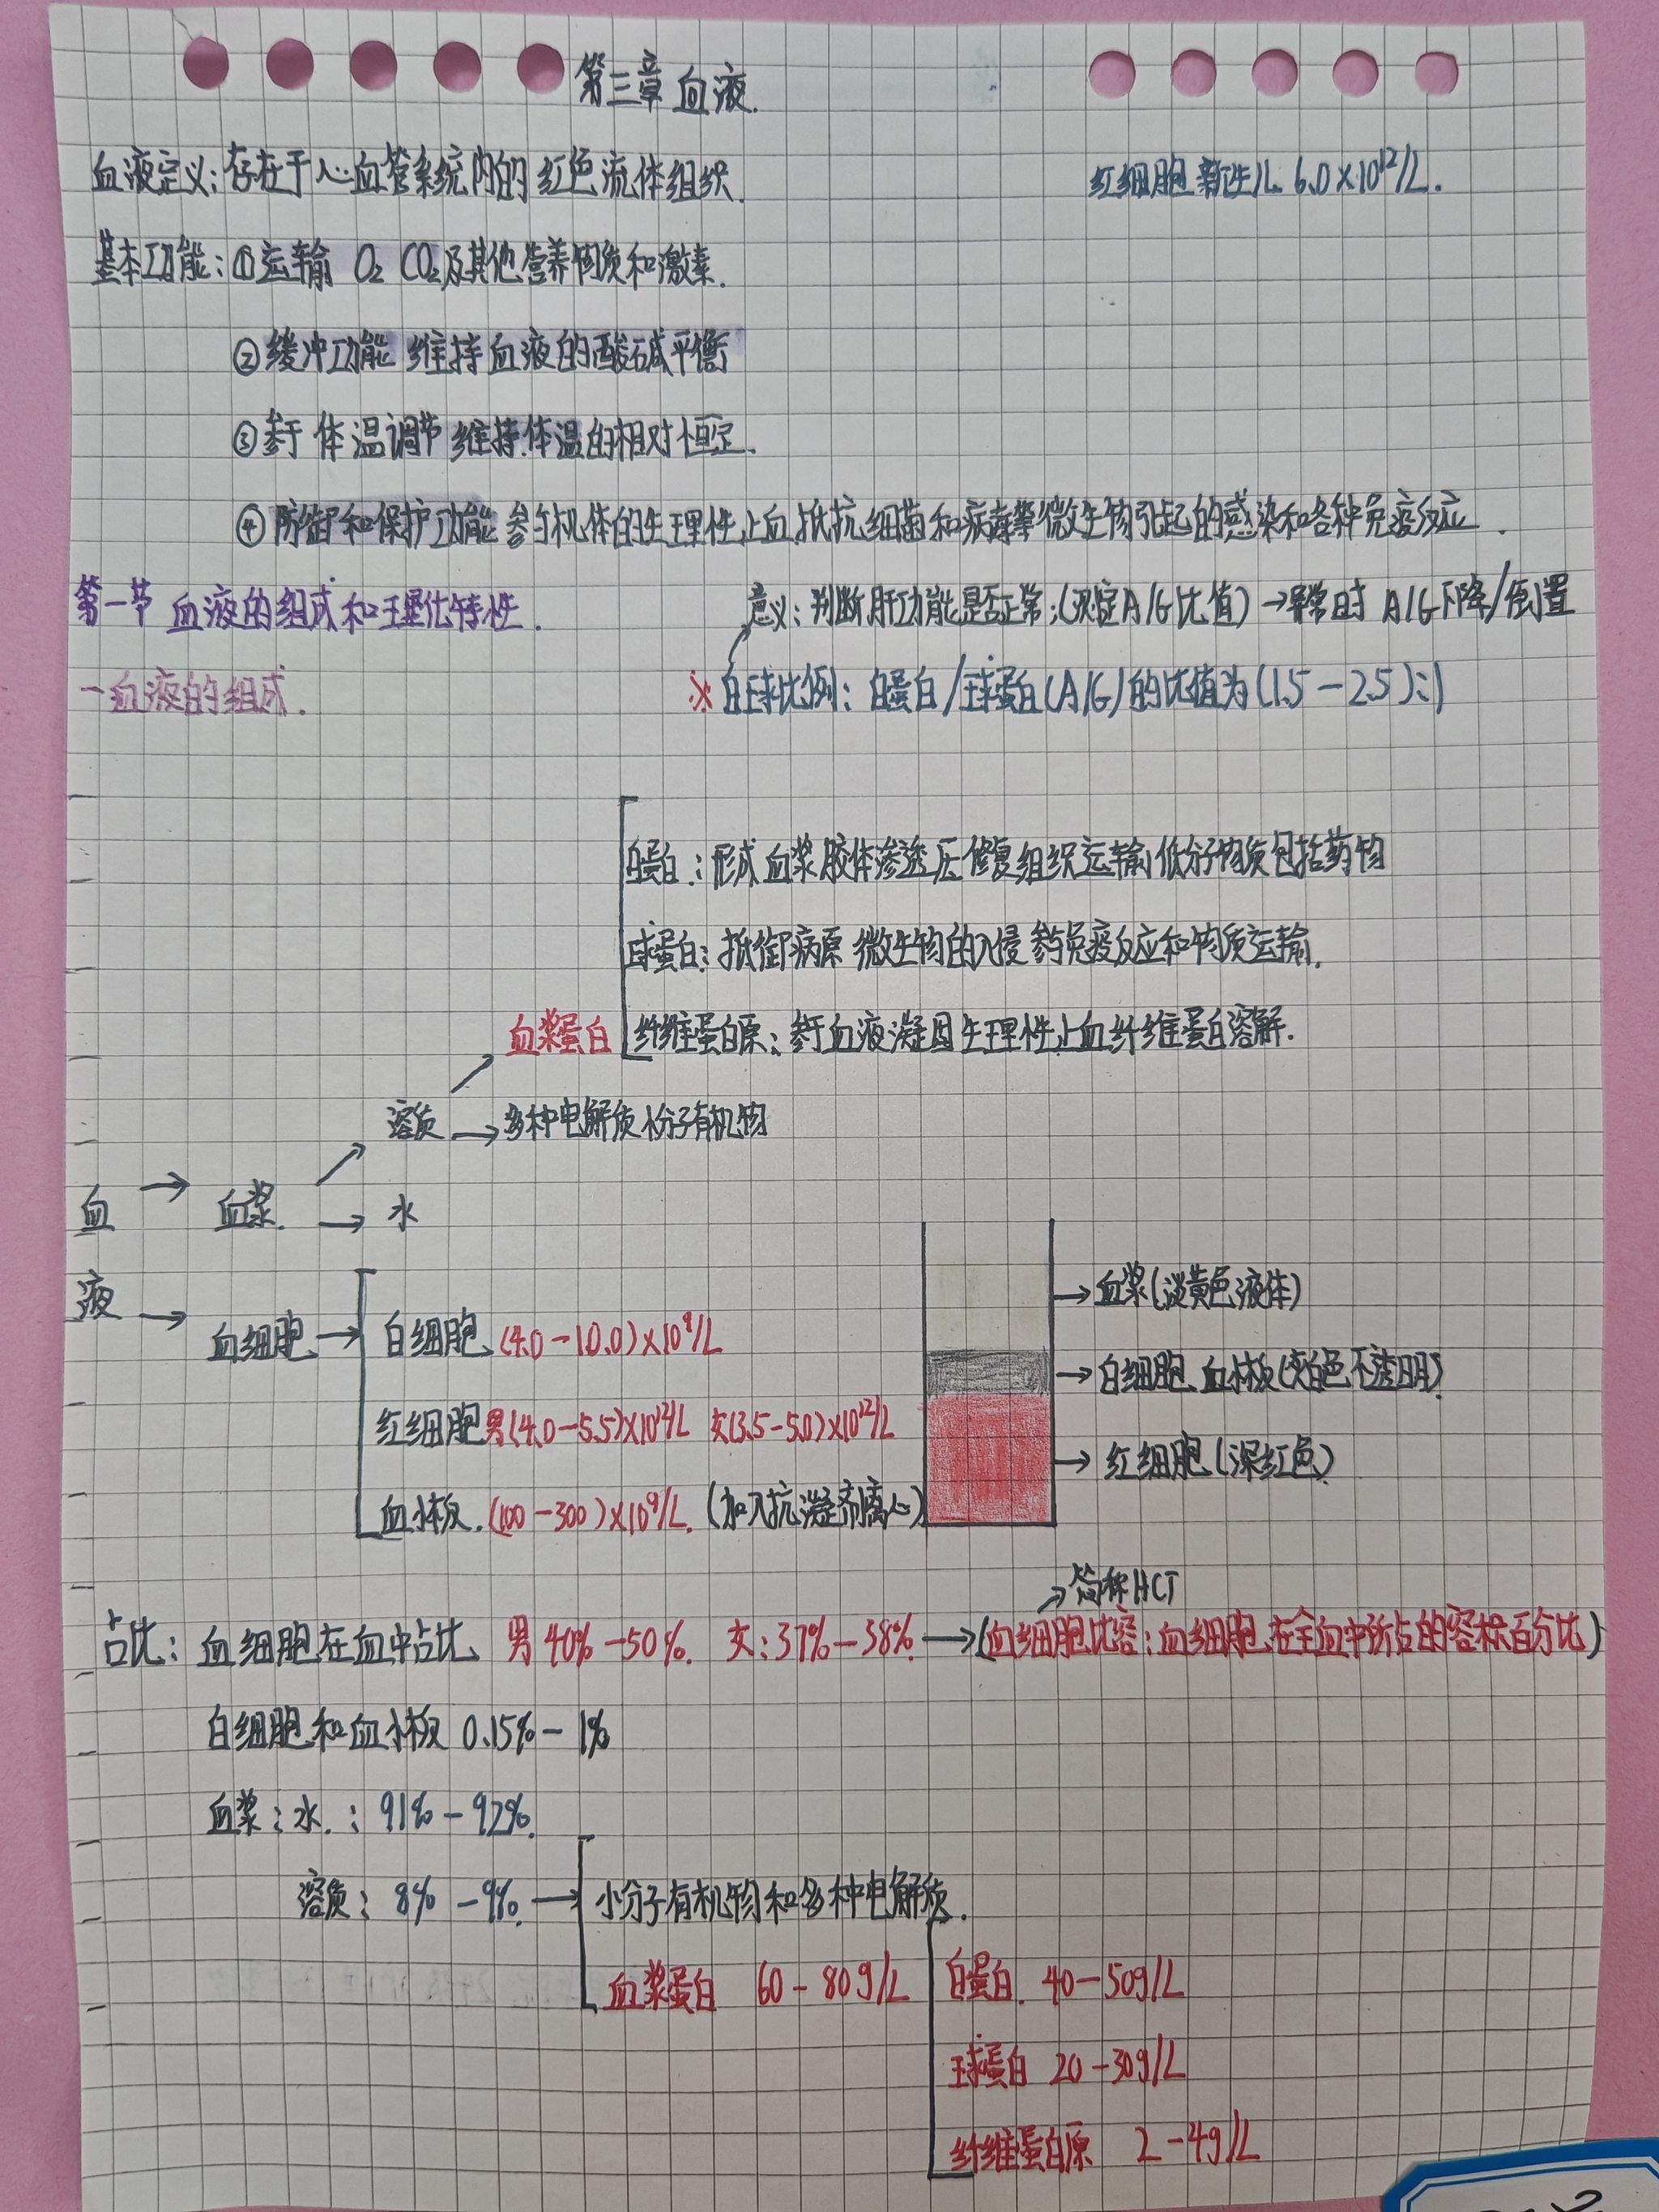 第三章 血液.
血液定义:存在于心血管系统内的红色流体组织.
红细胞 新生儿 6.0×10¹²/L.
基本功能:①运输 O₂ CO₂及其他营养物质和激素.
②缓冲功能 维持血液的酸碱平衡
③参于 体温调节 维持体温的相对恒定.
④防御和保护功能 参与机体的生理性止血.抵抗细菌和病毒等微生物引起的感染和各种免疫反应.
第一节 血液的组成和理化特性.
意义:判断肝功能是否正常;(测定A/G比值)→异常时 A/G下降/倒置
一血液的组成.
※ 白球比例:白蛋白/球蛋白(A/G)的比值为(1.5-2.5):1
白蛋白:形成血浆胶体渗透压 修复组织运输低分子物质包括药物
球蛋白:抵御病原微生物的入侵 参与免疫反应和物质运输.
血浆蛋白 纤维蛋白原:参于血液凝固生理性止血纤维蛋白溶解.
溶质→多种电解质 小分子有机物
血→血浆.→水
→血浆(淡黄色液体)
液→血细胞→白细胞(4.0-10.0)×10⁹/L
→白细胞、血小板(灰白色不透明)
红细胞男(4.0-5.5)×10¹²/L 女(3.5-5.0)×10¹²/L
→红细胞(深红色)
血小板.(100-300)×10⁹/L.(加入抗凝剂离心)
→简称HCT
占比:血细胞在血中占比 男40%-50%. 女:37%-38%.→(血细胞比容:血细胞在全血中所占的容积百分比)
白细胞和血小板 0.15%-1%
血浆:水.:91%-92%.
溶质:8%-9%.→小分子有机物和多种电解质.
血浆蛋白 60-80g/L 白蛋白. 40-50g/L
球蛋白 20-30g/L
纤维蛋白原 2-4g/L